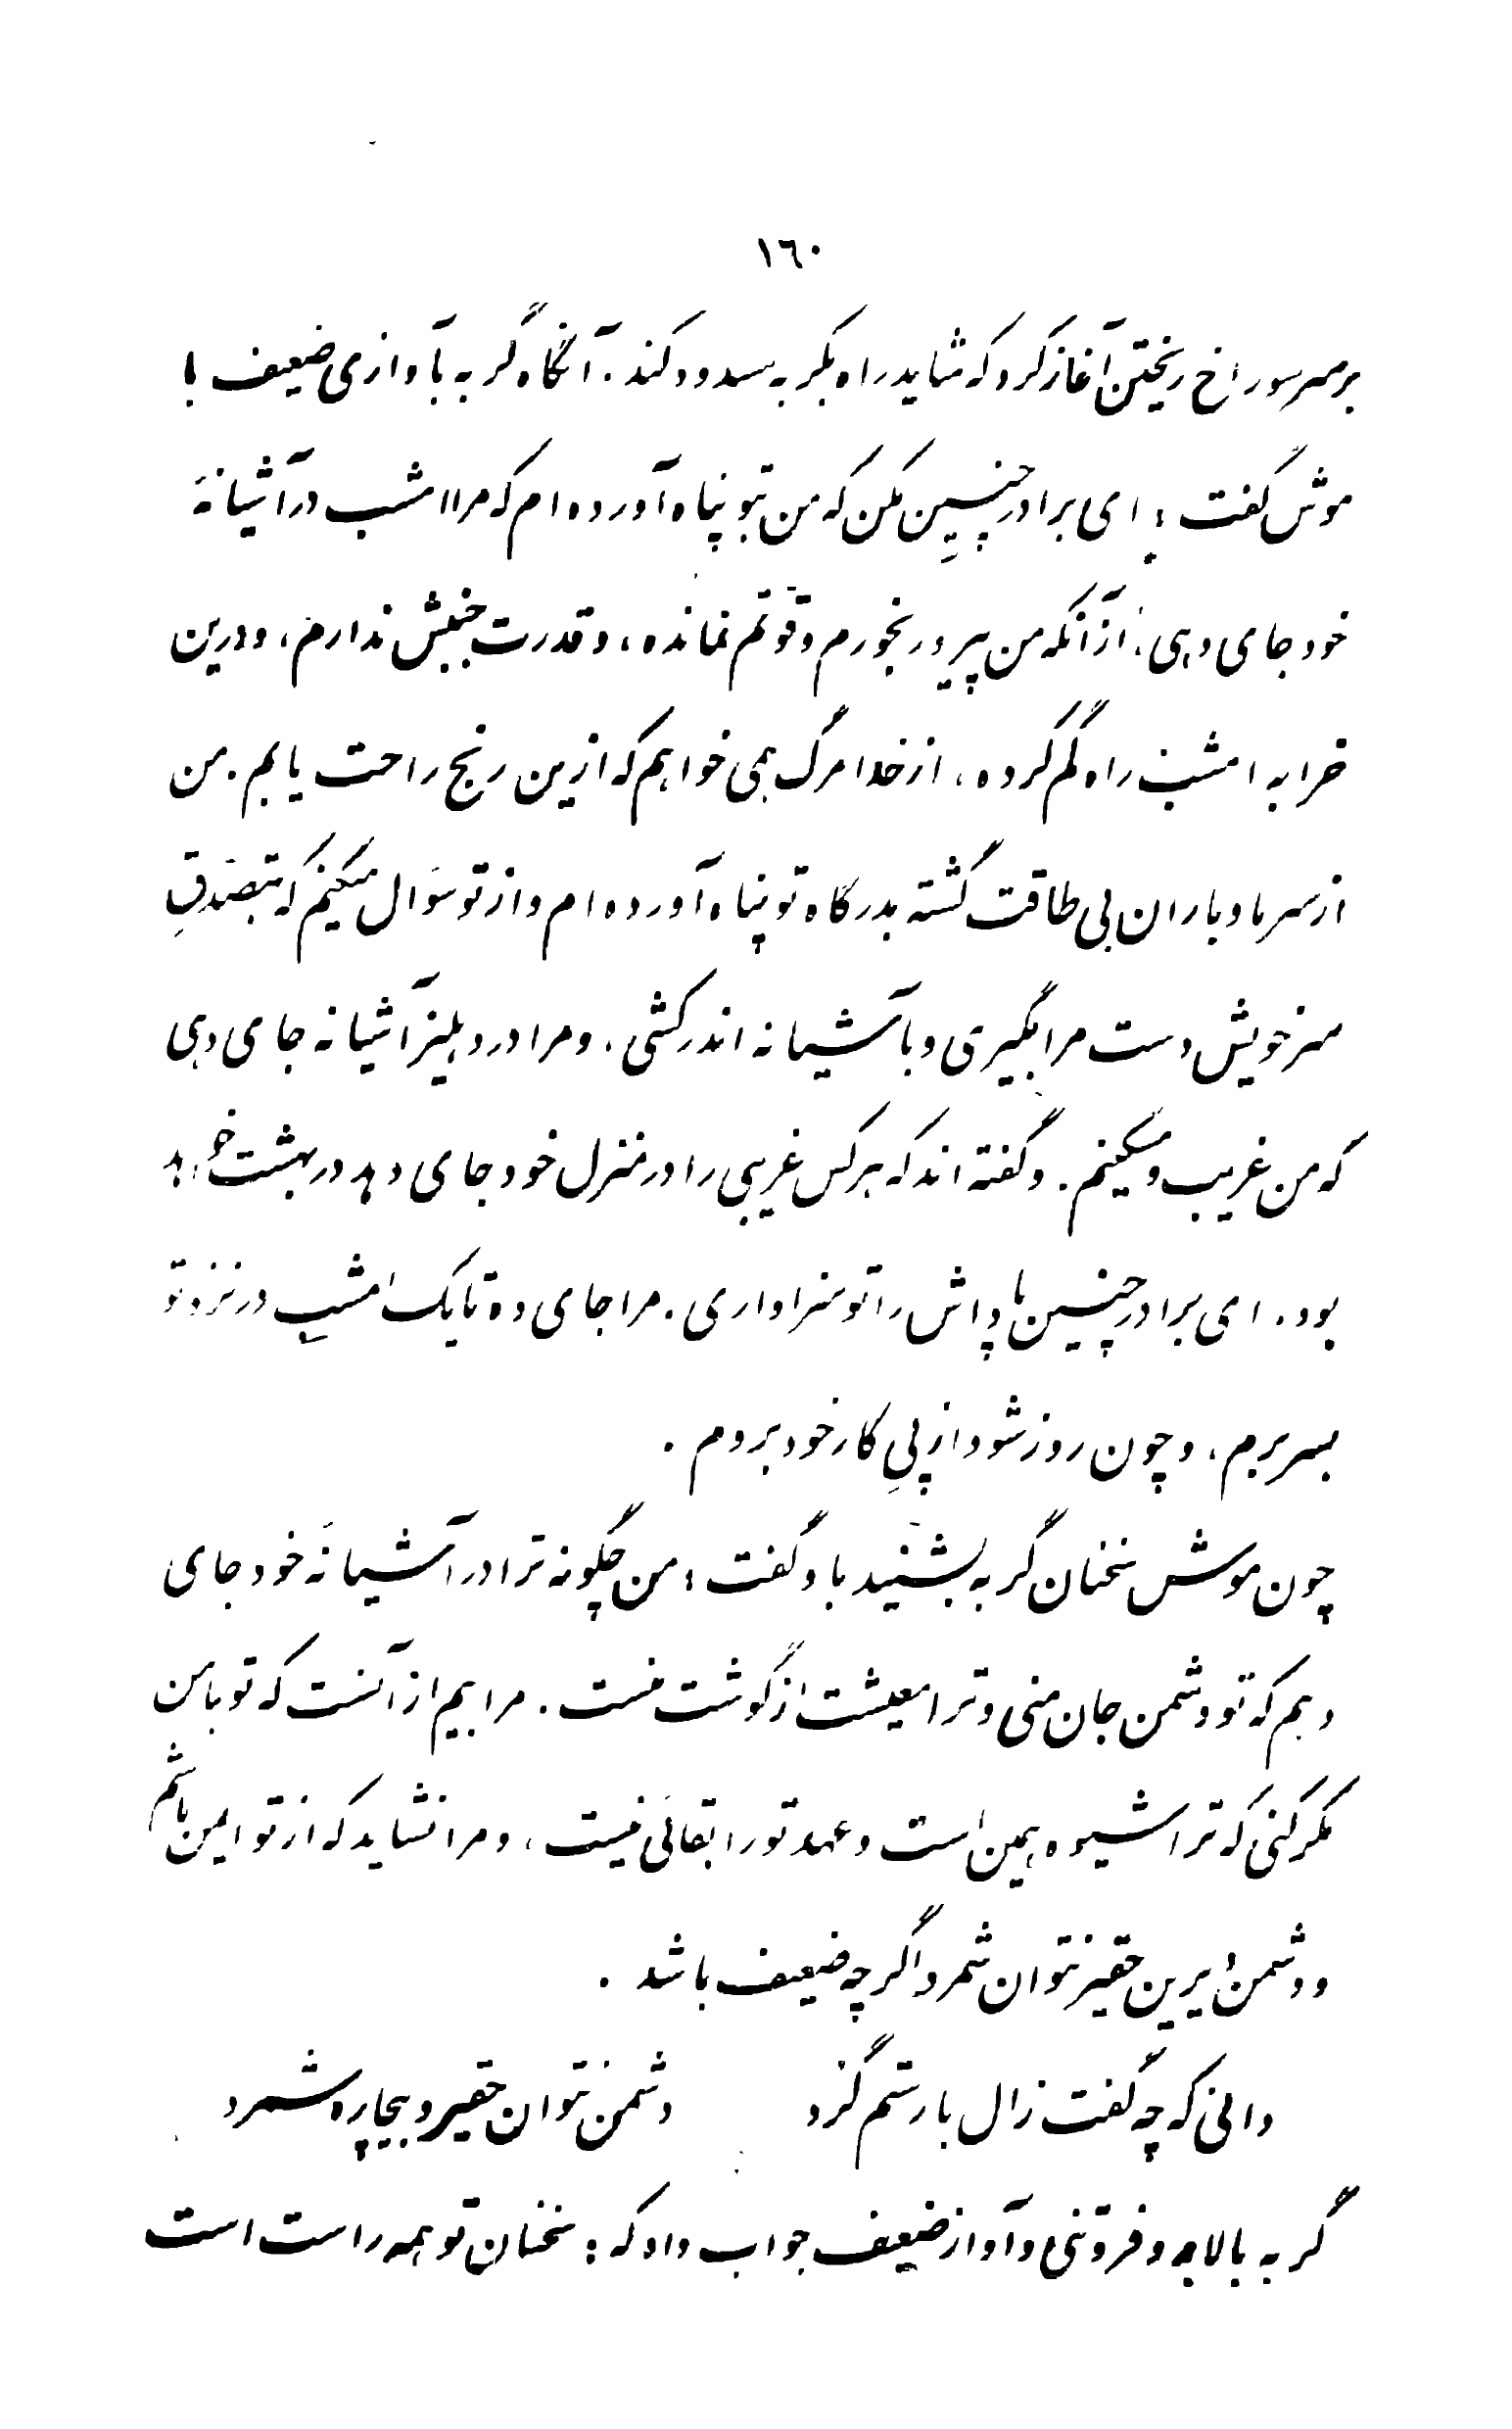 ١٦٠
بر سر سوراخ ریختن آغاز کرد که شاید راه بگربه مسدود کند. آنگاه گربه بآوازی ضعیف با
موش گفت: ای برادر چنین مکن که من بتو پناه آورده ام که مرا امشب در آشیانهٔ
خود جای دهی، از آنکه من پیر و رنجورم و قوّتم نمانده، و قدرت جنبش ندارم، و درین
خرابه امشب راه گم کرده، از خدا مرگ همی خواهم که ازین رنج راحت یابم. من
از سرما و باران بی طاقت گشته بدرگاه تو پناه آورده ام و از تو سؤال میکنم که بتصدّقِ
سر خویش دست مرا بگیری و بآشیانه اندر کشی. و مرا در دهلیز آشیانه جای دهی
که من غریب و مسکینم. و گفته اند که هر کس غریبی را در منزل خود جای دهد در بهشت خواهد
بود. ای برادر چنین پاداش را تو سزاواری. مرا جای ده تا یک امشب در نزد تو
بسر برم، و چون روز شود از پیِ کار خود بروم.
چون موش سخنان گربه بشنید با او گفت: من چگونه ترا در آشیانهٔ خود جای
دهم که تو دشمن جان منی و ترا معیشت از گوشت منست. مرا بیم از آنست که تو با من
مکر کنی که ترا شیوه همین است و عهد تو را بقائی نیست، و مرا نشاید که از تو ایمن باشم
و دشمن دیرین حقیر نتوان شمرد اگر چه ضعیف باشد.
دانی که چه گفت زال با رستم گرد    دشمن نتوان حقیر و بیچاره شمرد
گربه بالابه و فروتنی و آواز ضعیف جواب داد که: سخنان تو همه راست است